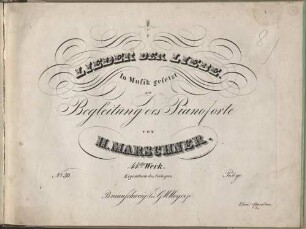 LIEDER DER LIEBE.
In Musik gesetzt
Begleitung des Pianoforte
von
H. MARSCHNER.
44tes Werk.
Eigenthum des Verlegers
Braunschweig bei G.M. Meyer jr.